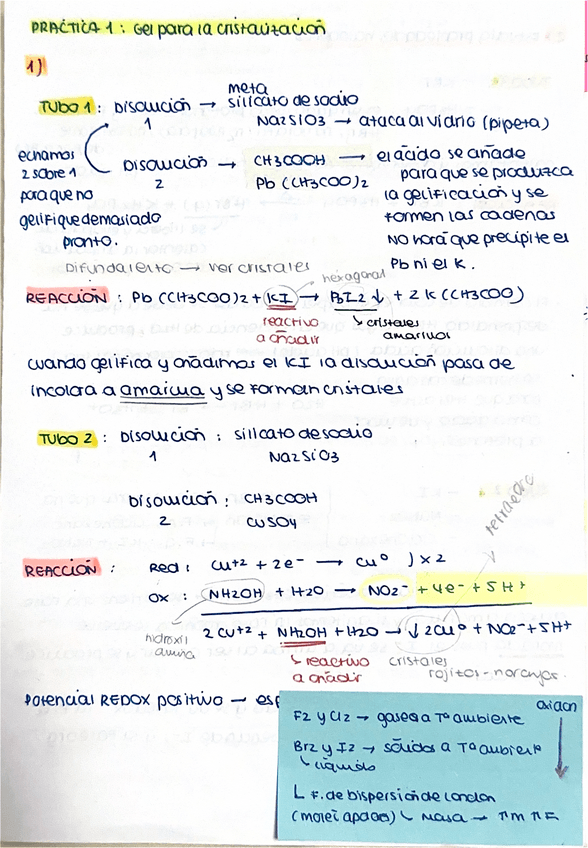 PRÁCTICA 1: Gel para la cristalización
1)
TUBO 1: Disolución 1 → meta silicato de sodio
Na2SiO3 → ataca al vidrio (pipeta)
echamos 2 sobre 1 para que no gelifique demasiado pronto.
Disolución 2 → CH3COOH → el ácido se añade
Pb (CH3COO)2
para que se produzca
la gelificación y se
formen las cadenas
No hará que precipite el
Pb ni el K.
Difunda lento → ver cristales
hexagonal
REACCIÓN: Pb (CH3COO)2 + KI → PbI2 ↓ + 2K (CH3COO)
reactivo a añadir
↳ cristales amarillos
cuando gelifica y añadimos el KI la disolución pasa de
incolora a amarilla y se forman cristales
TUBO 2: Disolución 1: silicato de sodio
Na2SiO3
Disolución 2: CH3COOH
CuSO4
tetraedro
REACCIÓN: Red: Cu+2 + 2e- → Cu0 ) x 2
Ox: NH2OH + H2O → NO2- + 4e- + 5H+
hidroxil amina
2 Cu+2 + NH2OH + H2O → ↓ 2Cu0 + NO2- + 5H+
↳ reactivo a añadir
cristales rojitos-naranjas.
Potencial REDOX positivo → esp
F2 y Cl2 → gases a Tª ambiente
Br2 y I2 → sólidos a Tª ambiente
↳ líquido
L F. de dispersión de London
(moléc apolar) ↳ masa → ↑m ↑F